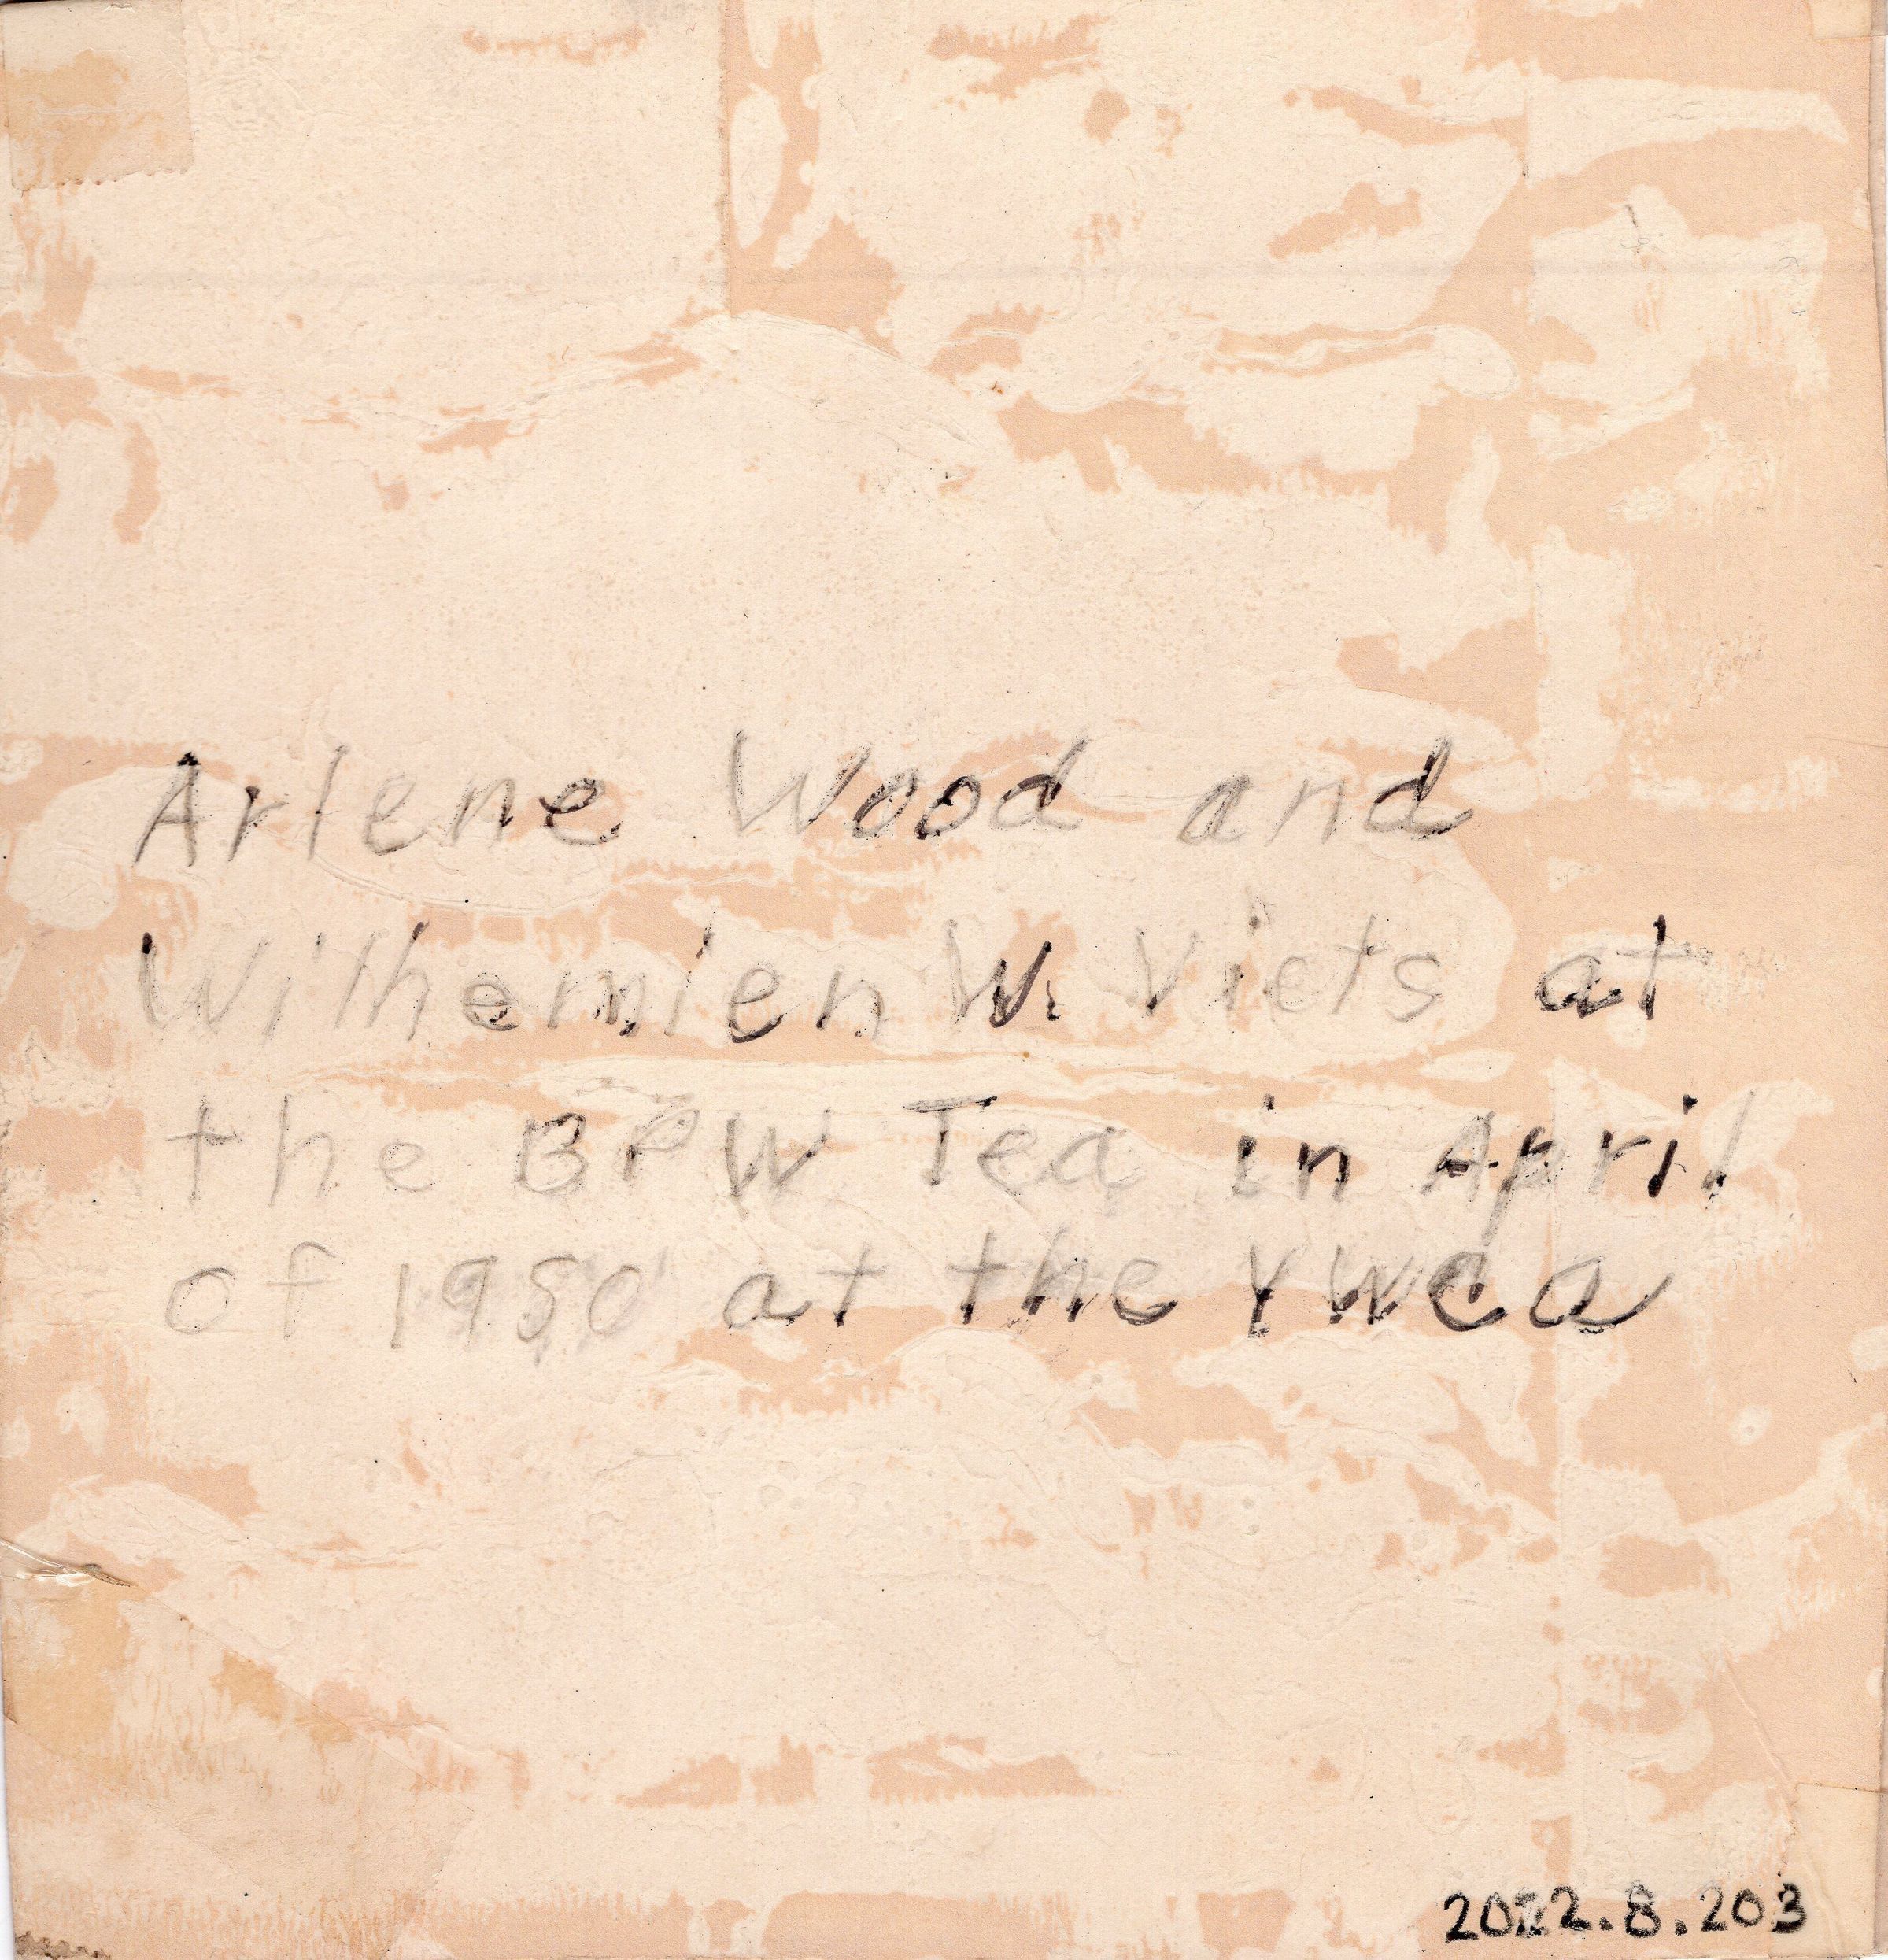 Arlene Wood and
Wilhemien W. Viets at
the BPW Tea in April
of 1950 at the YWCA
2022.8.203